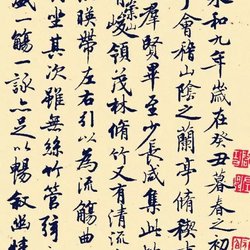 永和九年歲在癸丑暮春之初
于會稽山陰之蘭亭脩稧
羣賢畢至少長咸集此
崇山
峻領茂林脩竹又有清流
暎帶左右引以為流觴曲
坐其次雖無絲竹管弦
盛一觴一詠亦足以暢敘幽情